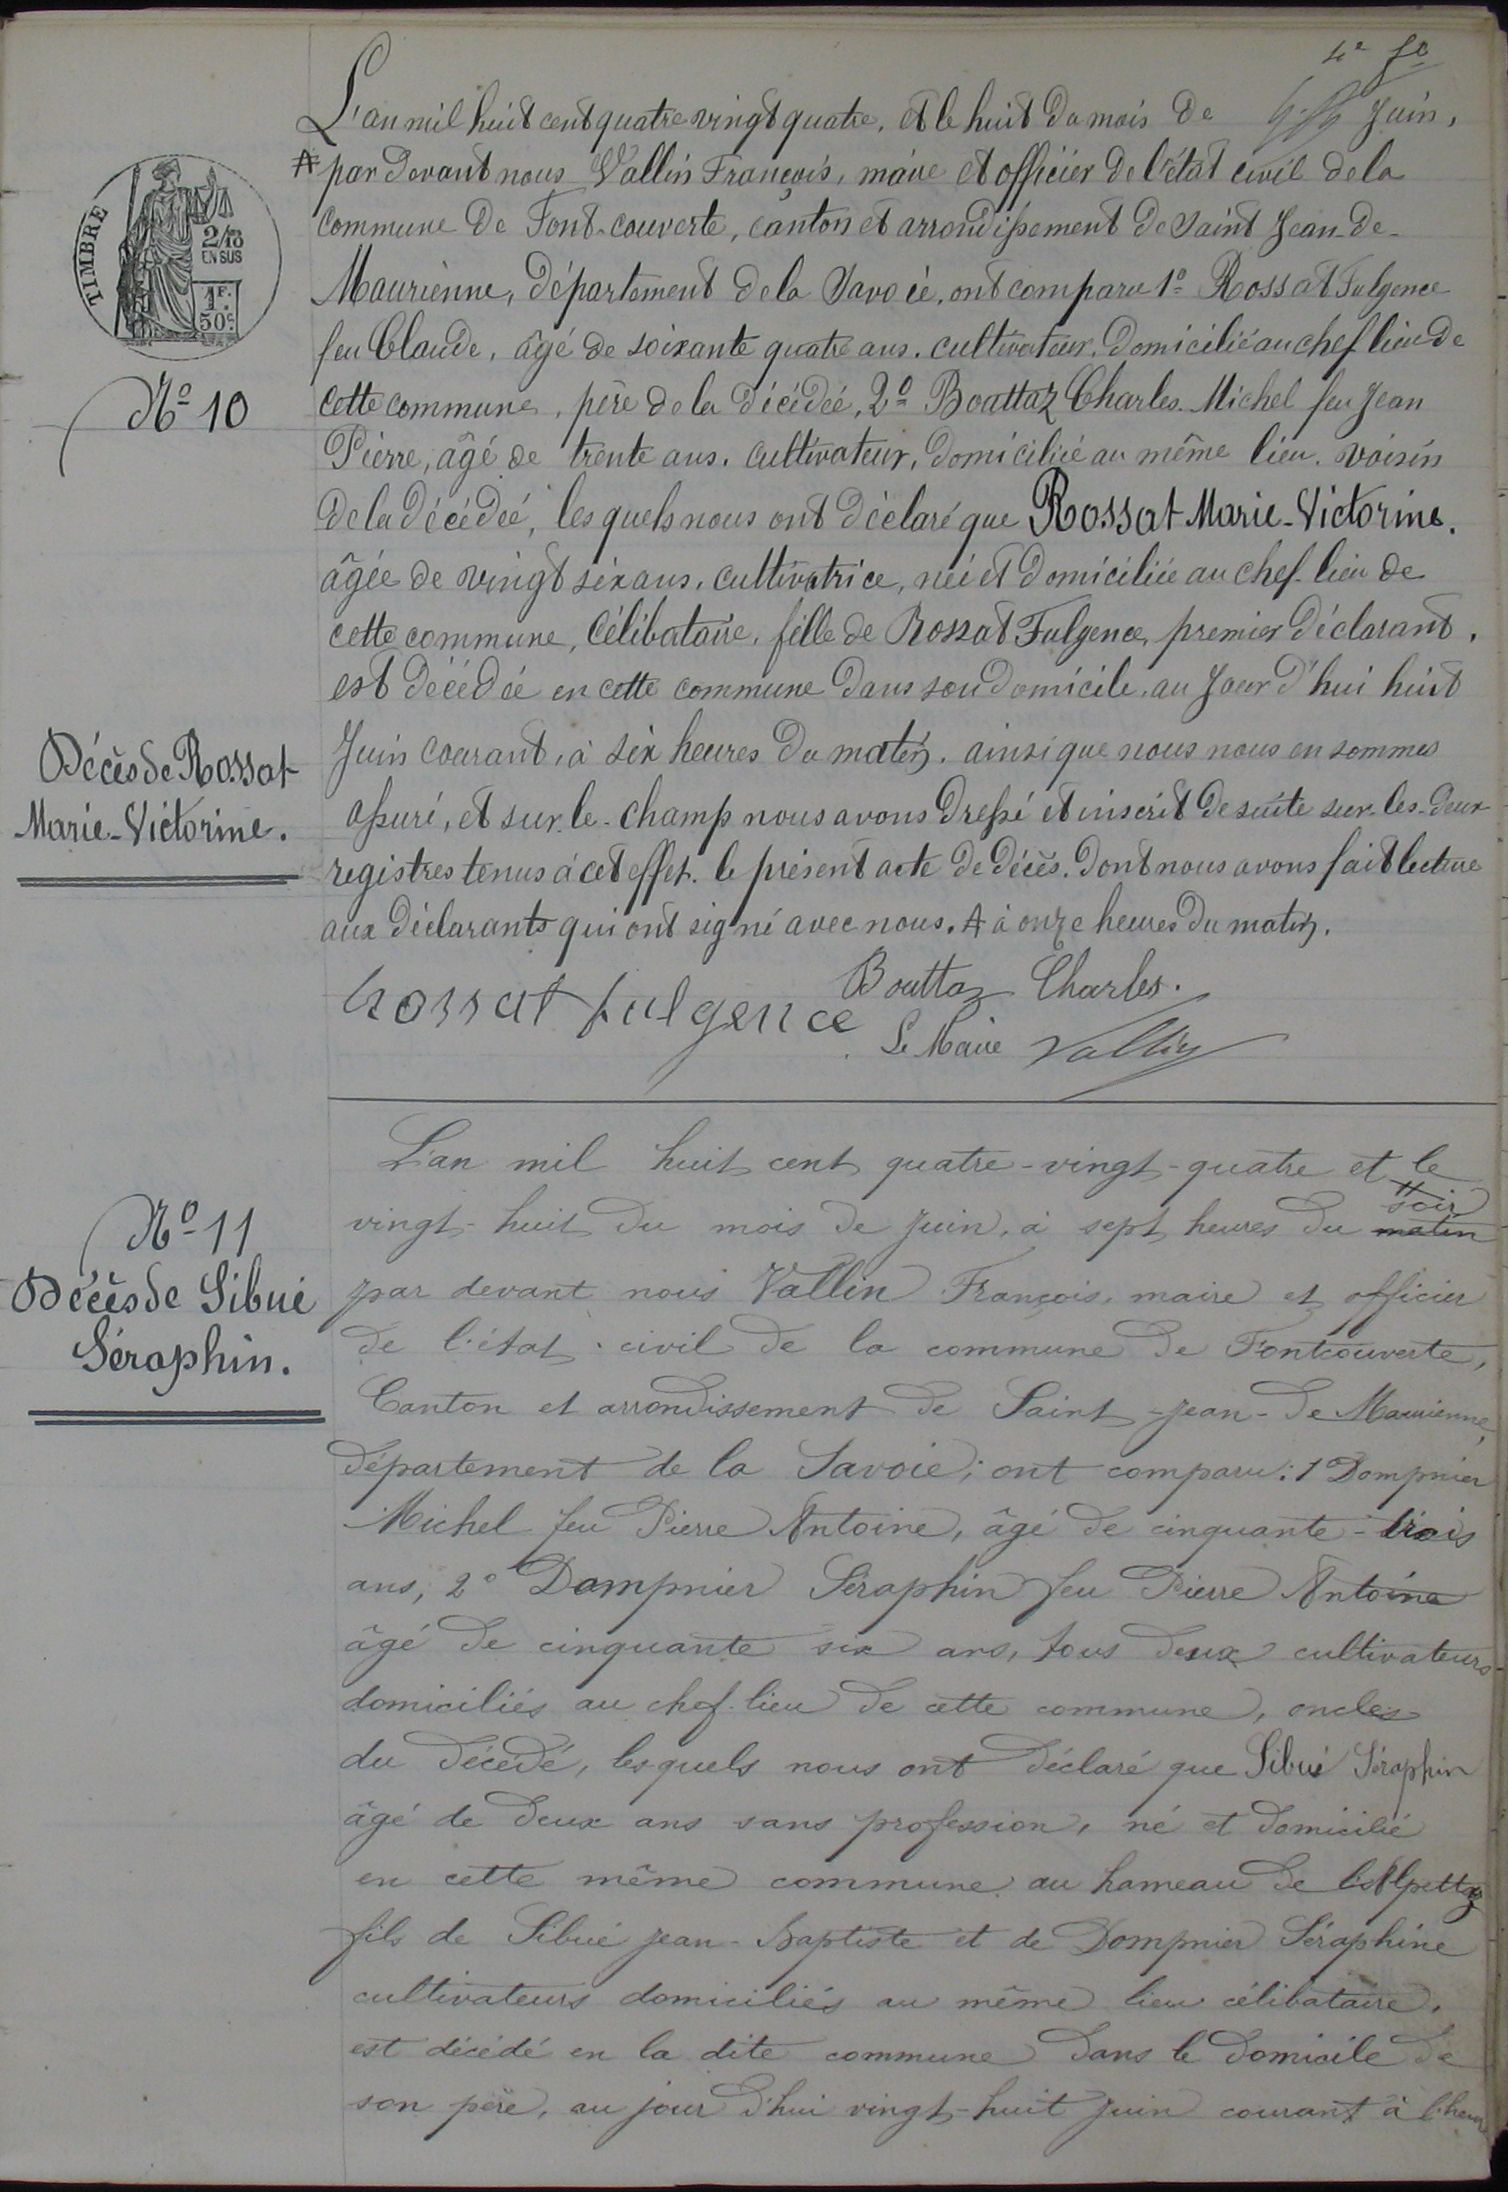 4e fo
L'an mil huit cent quatre vingt quatre, et le huit du mois de Juin,
A par devant nous Vallin François, maire et officier de l'état civil de la
commune de Font-couverte, canton et arrondissement de Saint Jean-de-
Maurienne, département de la Savoie, ont comparu 1º Rossat Fulgence
feu Claude, âgé de soixante quatre ans, cultivateur, domicilié au chef lieu de
cette commune, père de la décédée, 2º Bouttaz Charles Michel feu Jean
Pierre, âgé de trente ans, cultivateur, domicilié au même lieu, voisin
de la décédée, lesquels nous ont déclaré que Rossat Marie-Victorine,
âgée de vingt six ans, cultivatrice, née et domiciliée au chef-lieu de
cette commune, célibataire, fille de Rossat Fulgence, premier déclarant,
est décédée en cette commune dans son domicile, au jour d'hui huit
Juin courant, à six heures du matin, ainsi que nous nous en sommes
assuré, et sur-le-champ nous avons dressé et inscrit de suite sur-les-deux
registres tenus à cet effet, le présent acte de décès, dont nous avons fait lecture
aux déclarants qui ont signé avec nous. A à onze heures du matin.
Rossat fulgence
Bouttaz Charles.
Le Maire Vallin
TIMBRE
2/10
EN SUS
1F.
50c
Nº 10
Décès de Rossat
Marie-Victorine.
Nº 11
Décès de Sibué
Séraphin.
L'an mil huit cent quatre-vingt-quatre et le
vingt-huit du mois de Juin, à sept heures du matin soir
par devant nous Vallin François, maire et officier
de l'état civil de la commune de Fontcouverte,
Canton et arrondissement de Saint-Jean-de Maurienne,
département de la Savoie; ont comparu: 1 Dompnier
Michel feu Pierre Antoine, âgé de cinquante-trois
ans, 2º Dompnier Séraphin feu Pierre Antoine
âgé de cinquante six ans, tous deux cultivateurs
domiciliés au chef-lieu de cette commune, oncles
du décédé, lesquels nous ont déclaré que Sibué Séraphin
âgé de deux ans sans profession, né et domicilié
en cette même commune au hameau de l'Alpettaz
fils de Sibué Jean-Baptiste et de Dompnier Séraphine
cultivateurs domiciliés au même lieu célibataire,
est décédé en la dite commune dans le domicile de
son père, au jour d'hui vingt-huit Juin courant à l'heure